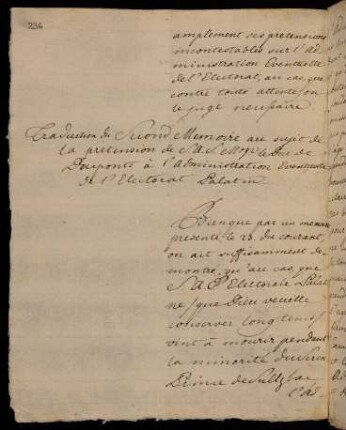 236
amplement ses pretensions
incontestables sur l'Ad
ministration Eventuelle
de l'Electorat, au cas, que
contre toute attente, on
le juge necessaire.
Traduction du Second Memoire au sujet de
la pretension de S.A.S. Mgr le Duc de
Deuxponts à l'Administration Eventuelle
de l'Electorat Palatin
Bienque par un memoire
presenté le 23. du courant
on ait suffisamment de
montré, qu'au cas que
S.A.E. Electorale Palati
ne (que Dieu veuille
conserver long tems)
vint à mourir pendant
la minorité du Seren.
Prince de Sultzbac
l'Ad